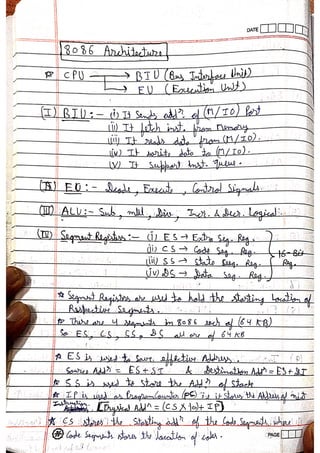 DATE
8086 Architecture
CPU → BIU (Bus Interface Unit)
→ EU (Execution Unit)
(I) BIU:- (i) It Sends addⁿ. of (M/IO) Port
(ii) It fetch inst. from Memory
(iii) It reads data from (M/IO).
(iv) It write data to (M/IO).
(v) It support Inst. queue.
(II) EU:- Decode, Execute, Control Signals.
(III) ALU:- Sub, mul, Div, Incr. & Decr. Logical
(IV) Segment Registers:- (i) ES → Extra Seg. Reg.
(ii) CS → Code Seg. Reg.
(iii) SS → State Seg. Reg.
(iv) DS → Data Seg. Reg.
16-Bit Reg.
* Segment Register are used to hold the starting location of
Respective Segments.
* There are 4 segments in 8086 each of (64 KB)
So ES, CS, SS, DS all are of 64 KB
* ES is used to save effective Address.
Source Addⁿ = ES+SI & Destination Addⁿ = ES+DI
* SS is used to store the Addⁿ of Stack
* IP is used as Program Counter (PC) i.e it stores the Address of inst
Instruction [Physical Addⁿ = (CS X 10) + IP]
* CS stores the Starting addⁿ of the Code Segments. where
* Code Segments stores the location of codes.
PAGE